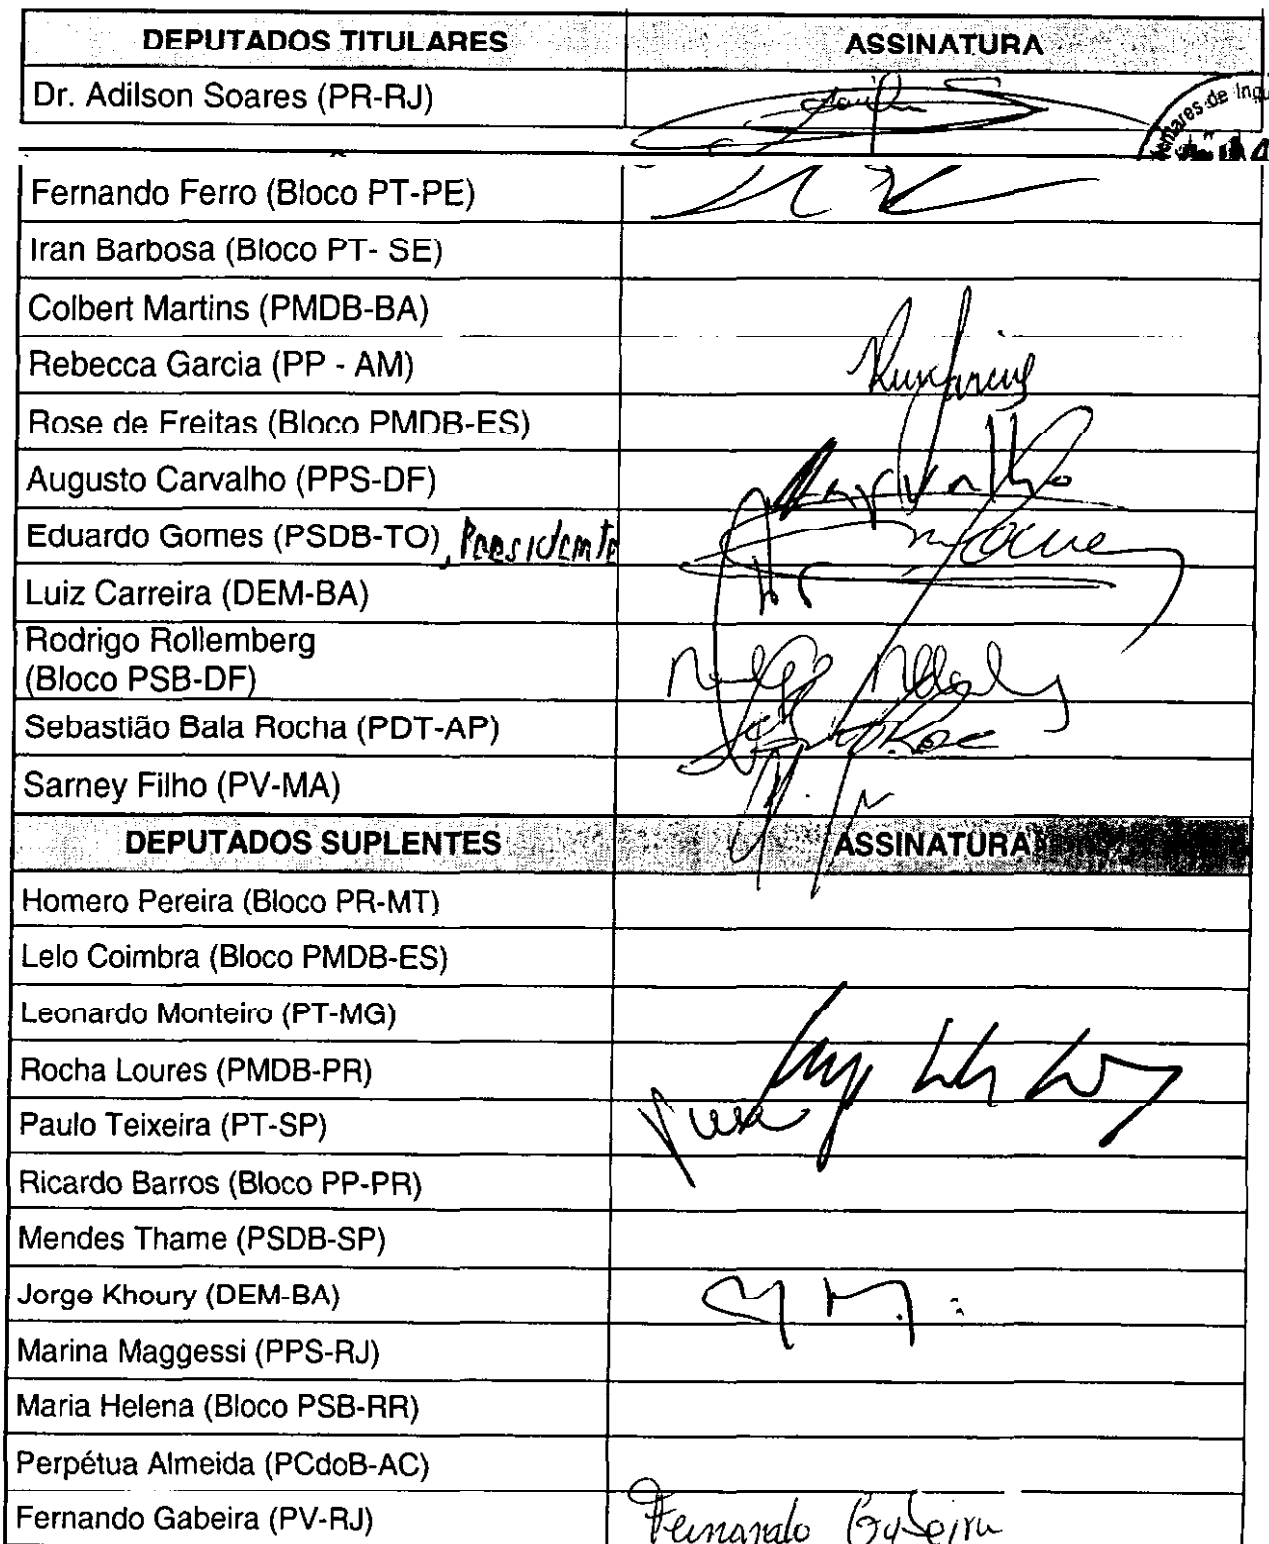 DEPUTADOS TITULARES ASSINATURA
Dr. Adilson Soares (PR-RJ)
de Inqu
Fernando Ferro (Bloco PT-PE)
Iran Barbosa (Bloco PT- SE)
Colbert Martins (PMDB-BA)
Rebecca Garcia (PP - AM)
Rose de Freitas (Bloco PMDB-ES)
Augusto Carvalho (PPS-DF)
Eduardo Gomes (PSDB-TO), Presidente
Luiz Carreira (DEM-BA)
Rodrigo Rollemberg
(Bloco PSB-DF)
Sebastião Bala Rocha (PDT-AP)
Sarney Filho (PV-MA)
DEPUTADOS SUPLENTES ASSINATURA
Homero Pereira (Bloco PR-MT)
Lelo Coimbra (Bloco PMDB-ES)
Leonardo Monteiro (PT-MG)
Rocha Loures (PMDB-PR)
Paulo Teixeira (PT-SP)
Ricardo Barros (Bloco PP-PR)
Mendes Thame (PSDB-SP)
Jorge Khoury (DEM-BA)
Marina Maggessi (PPS-RJ)
Maria Helena (Bloco PSB-RR)
Perpétua Almeida (PCdoB-AC)
Fernando Gabeira (PV-RJ) Fernando Gabeira